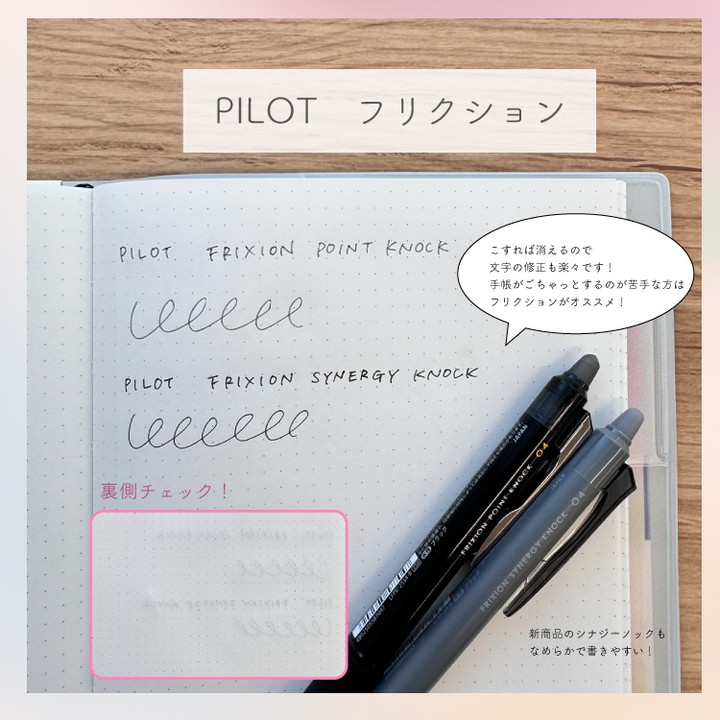 PILOT フリクション
PILOT FRIXION POINT KNOCK
こすれば消えるので
文字の修正も楽々です！
手帳がごちゃっとするのが苦手な方は
フリクションがオススメ！
PILOT FRIXION SYNERGY KNOCK
裏側チェック！
JAPAN
FRIXION POINT KNOCK 04
ブラック
JAPAN
FRIXION SYNERGY KNOCK 04
新商品のシナジーノックも
なめらかで書きやすい！